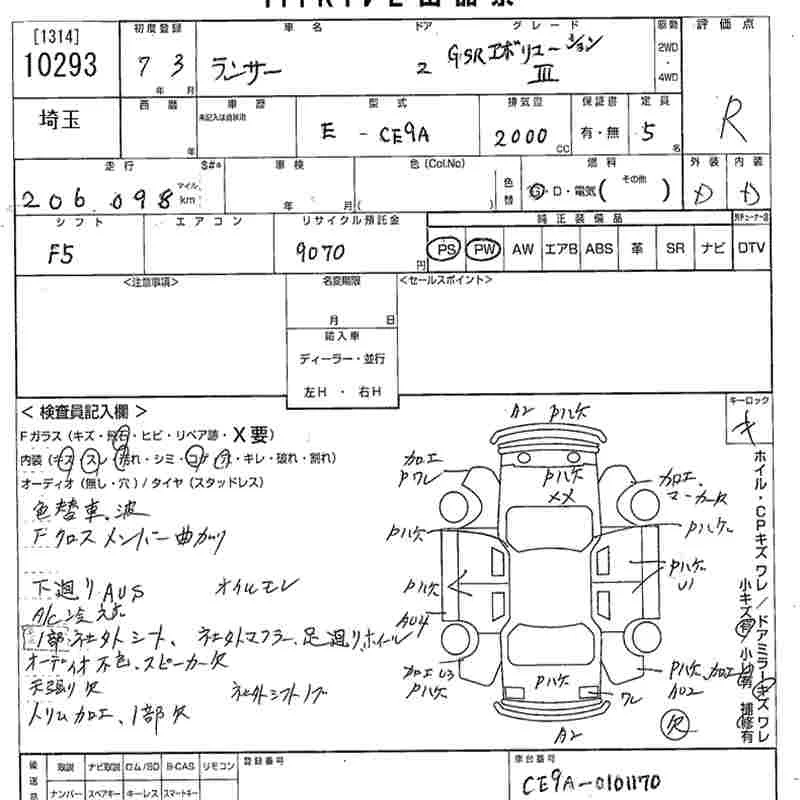 [1314]
10293
初度登録
7 3
年 月
車名
ランサー
ドア
2
グレード
GSR エボリューション
III
駆動
2WD
・
4WD
評価点
R
埼玉
西暦
年
車歴
未記入は自家用
型式
E - CE9A
排気量
2000
CC
保証書
有・無
定員
5
名
走行
S#*
206,098
マイル
km
車検
年 月
色 (Col.No)
( )
色替
燃料
G・D・電気( その他 )
外装
D
内装
D
シフト
F5
エアコン
リサイクル預託金
9070
円
純正装備品
PS PW AW エアB ABS 革 SR ナビ
DTV
<注意事項>
名変期限
月 日
<セールスポイント>
輸入車
ディーラー・並行
左H ・ 右H
キーロック
キ
< 検査員記入欄 >
Fガラス (キズ・飛石・ヒビ・リペア跡・X要)
内装 (キズ・スレ・汚れ・シミ・コゲ・穴・キレ・破れ・割れ)
オーディオ (無し・穴) / タイヤ (スタッドレス)
色替車、波
Fクロスメンバー曲がり
下廻りAUS オイルモレ
A/C冷えず
1部社外シート、社外マフラー、足廻り、ホイール
オーディオ不色、スピーカー欠
天張り欠 社外シフトノブ
トリム加工、1部欠
A2 Pハゲ
加工
Pワレ
Pハゲ
XX
加工、
マーカー欠
Pハゲ
Pハゲ
Pハゲ
Pハゲ
U1
A04
加工 U3
Pハゲ
Pハゲ
Pハゲ、加工
A02
ワレ
A2
欠
ホイル・CPキズ ワレ / ドアミラーキズ ワレ
小キズ有 小凹有 補修有
後送
取説 ナビ取説 ロム/SD B-CAS リモコン
ナンバー スペアキー キーレス スマートキー
登録番号
車台番号
CE9A-0101170